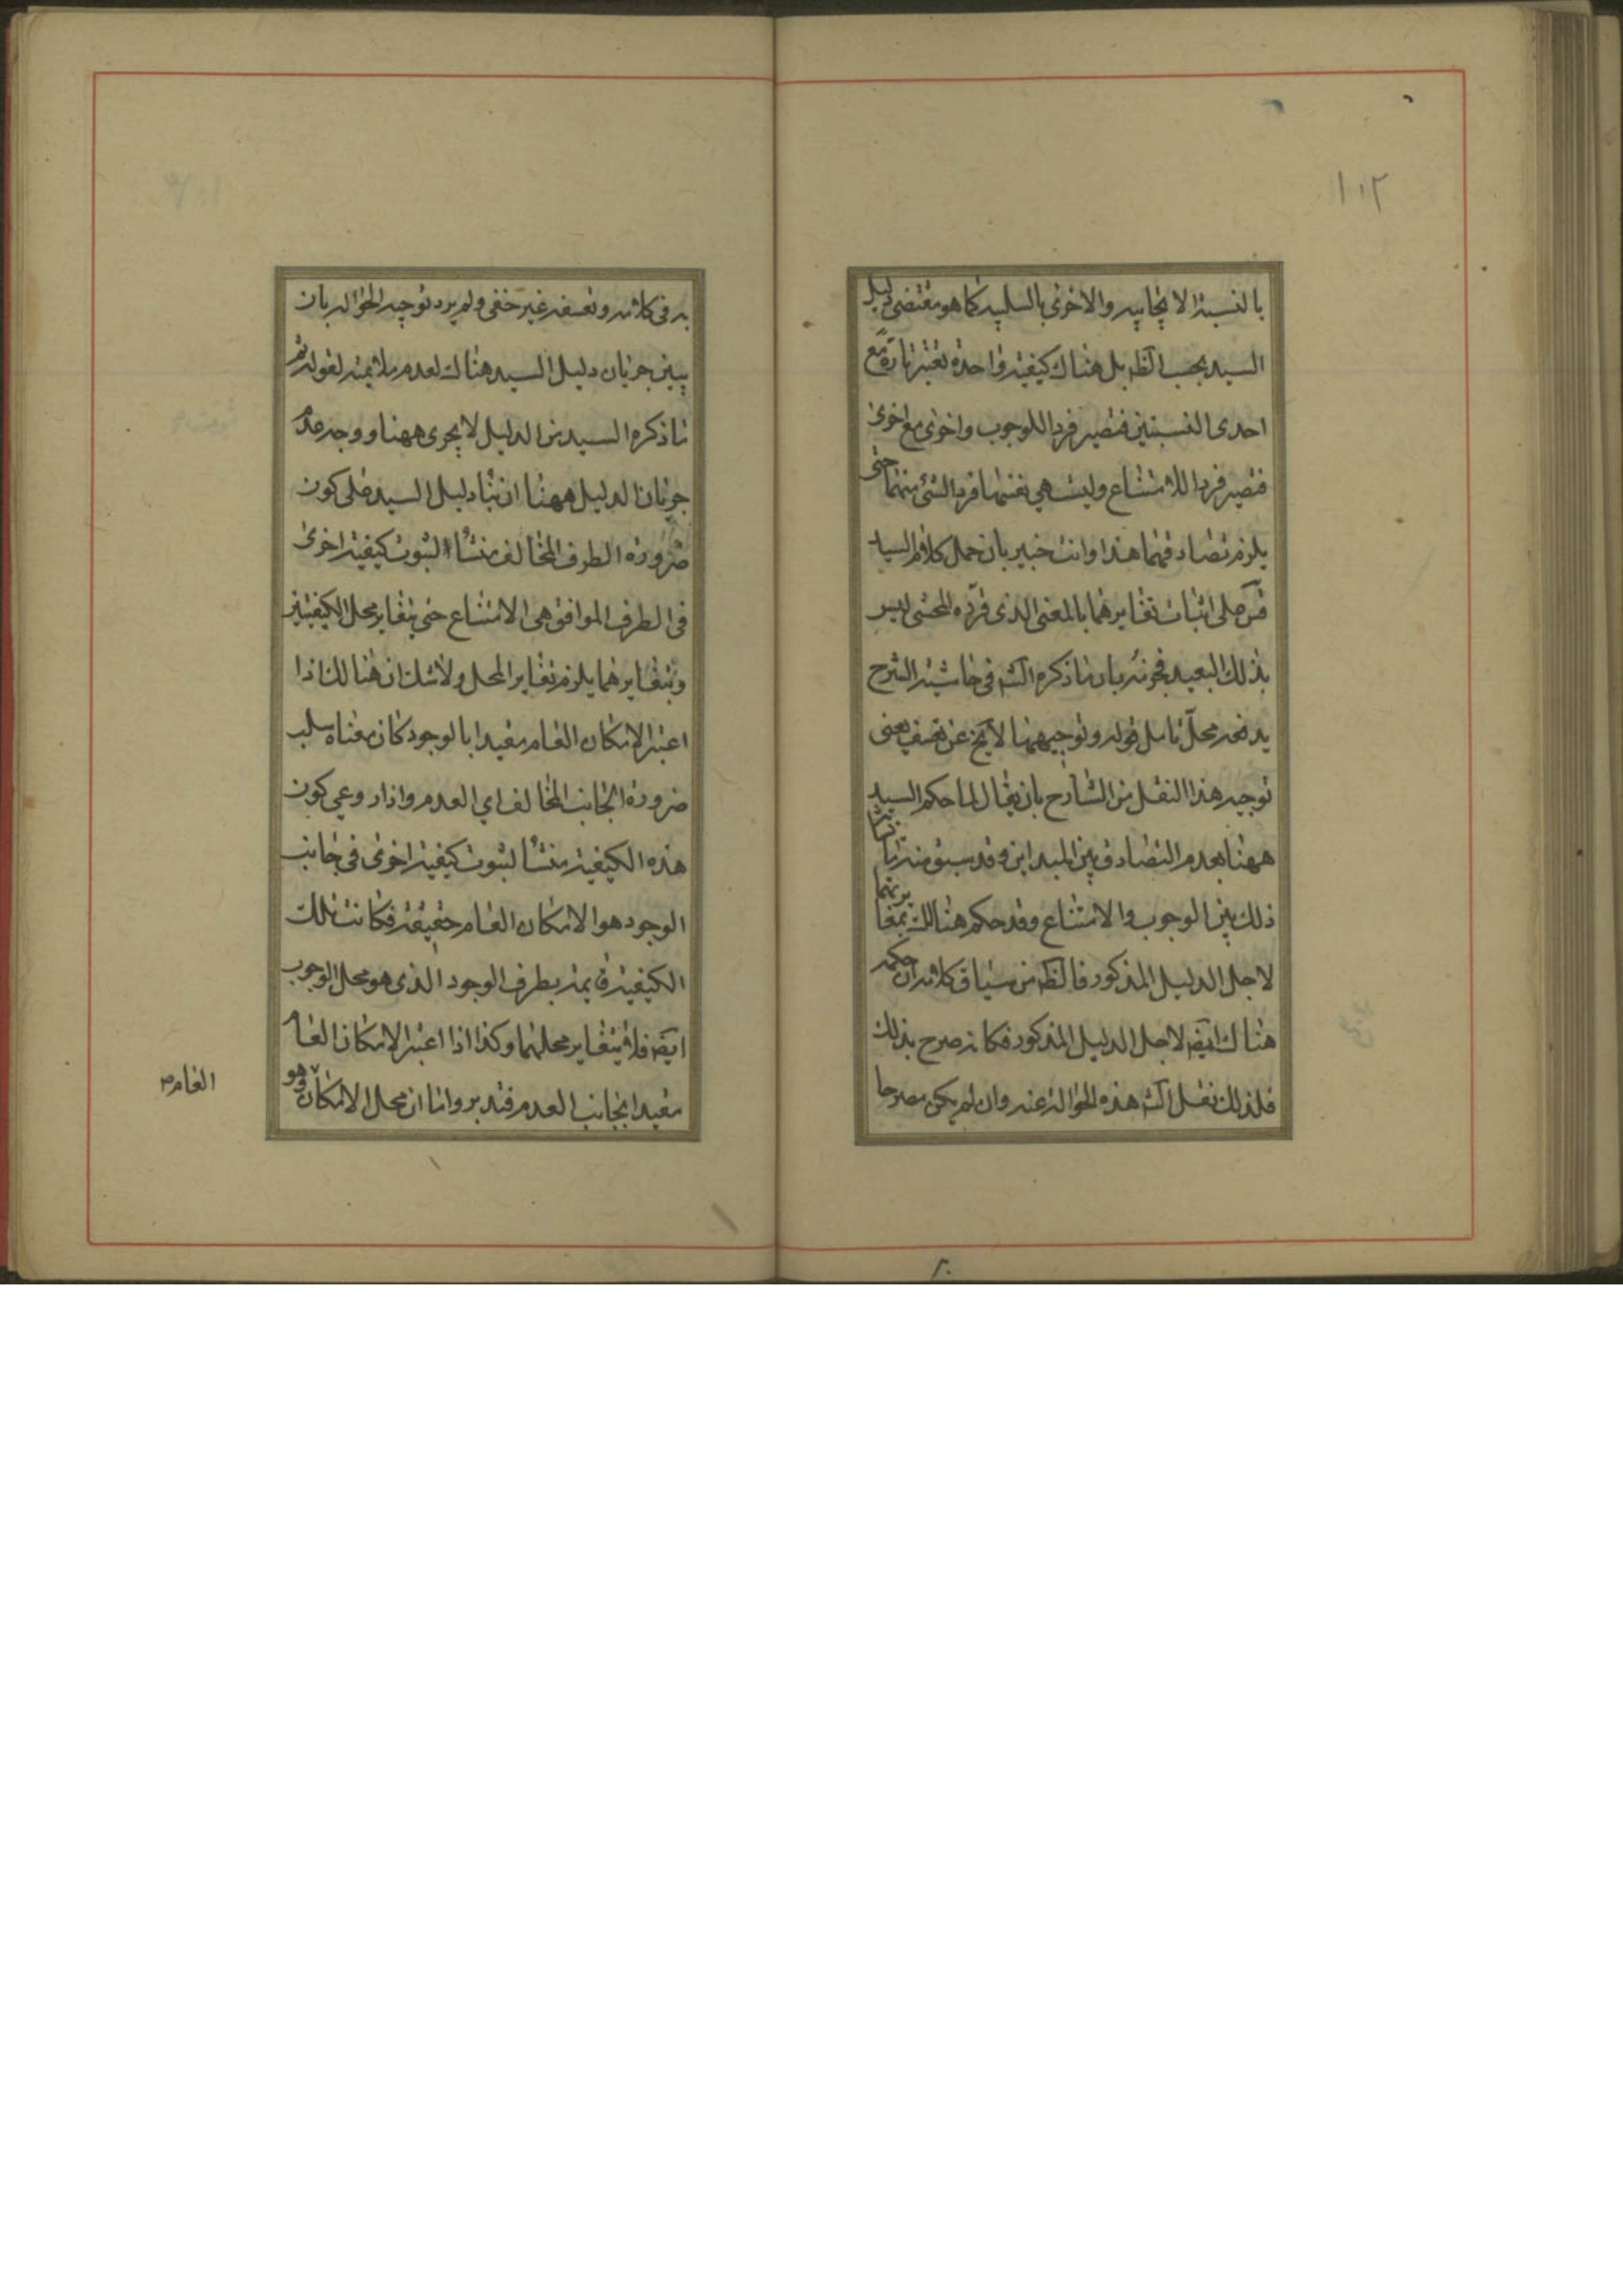 ١٠٢
بالنسبة الايجابيه والاخرى بالسلبيه كما هو مقتضى دليل
السيد بحسب الظ بل هناك كيفية واحدة تعتبر تارة مع
احدى النسبتين فتصير فردا للوجوب واخرى مع اخرى
فتصير فردا للامتناع وليست هي نفسها فردا لشئ منهما حتى
يلزم تصادقهما هذا وانت خبير بان حمل كلام السيد
قس على اثبات تغايرهما بالمعنى الذى قرّره المحشى ليس
بذلك البعيد فجزمه بان ما ذكره الش فى حاشية الشرح
يدفعه محلّ تامل قوله وتوجيههما لا يخ عن تعسف يعنى
توجيه هذا النقل من الشارح بان يقال لما حكم السيد
ههنا بعدم التصادق بين المبداين وقد سبق منه اثبات
ذلك بين الوجوب والامتناع وقد حكم هنالك بتغايرهما
لاجل الدليل المذكور فالظ من سياق كلامه ان حكمه
هناك ايضه لاجل الدليل المذكور فكانه صرح بذلك
فلذلك نقل الش هذه الحوالة عنه وان لم يكن مصرحا
به فى كلامه وتعسفه غير خفى ولم يرد توجيه الحواله بان
يبين جريان دليل السيد هناك لعدم ملائمته لقوله ثم
ما ذكره السيد من الدليل لا يجرى ههنا ووجه عدم
جريان الدليل ههنا ان بناء دليل السيد على كون
ضرورة الطرف المخالف منشأ لثبوت كيفية اخرى
فى الطرف الموافق هى الامتناع حتى يتغاير محل الكيفيتين
وبتغايرهما يلزم تغاير المحل ولا شك ان هنالك اذا
اعتبر الامكان العام مقيدا بالوجود كان معناه سلب
ضرورة الجانب المخالف اي العدم واذا روعي كون
هذه الكيفية منشأ لثبوت كيفية اخرى فى جانب
الوجود هو الامكان العام حقيقة فكانت تلك
الكيفية قائمة بطرف الوجود الذى هو محل الوجوب
ايضه فلا يتغاير محلهما وكذا اذا اعتبر الامكان العام
مقيدا بجانب العدم فتدبر واما ان محل الامكان
العام